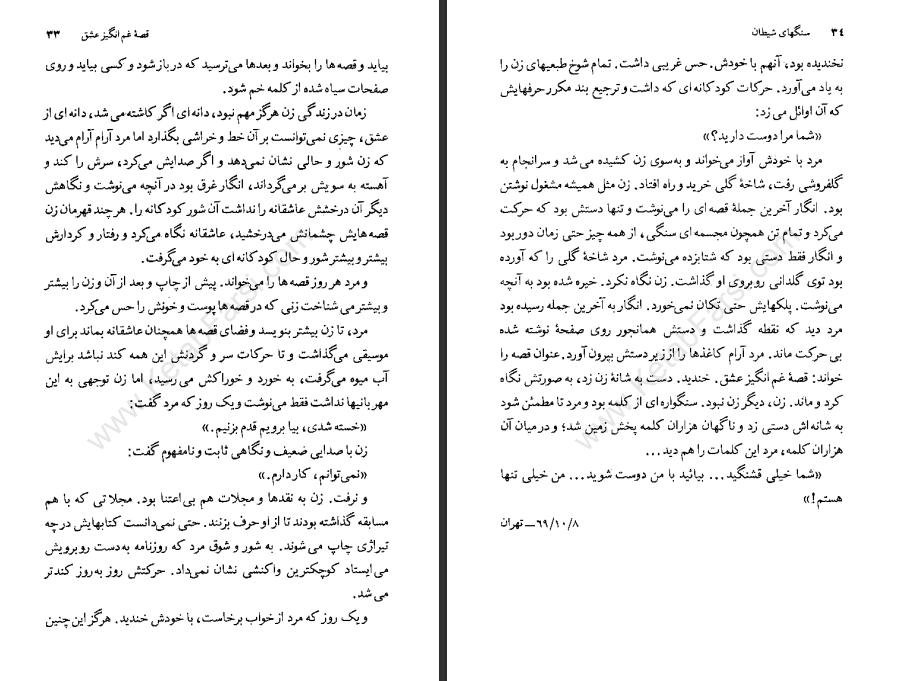 قصهٔ غم‌انگیز عشق ۳۳
بیاید و قصه‌ها را بخواند و بعدها می‌ترسید که در باز شود و کسی بیاید و روی
صفحات سیاه شده از کلمه خم شود.
زمان در زندگی زن هرگز مهم نبود، دانه ای اگر کاشته می شد، دانه ای از
عشق، چیزی نمی‌توانست بر آن خط و خراشی بگذارد اما مرد آرام آرام می‌دید
که زن شور و حالی نشان نمی‌دهد و اگر صدایش می‌کرد، سرش را کند و
آهسته به سویش بر می‌گرداند، انگار غرق بود در آنچه می‌نوشت و نگاهش
دیگر آن درخشش عاشقانه را نداشت آن شور کودکانه را. هر چند قهرمان زن
قصه‌هایش چشمانش می‌درخشید، عاشقانه نگاه می‌کرد و رفتار و کردارش
بیشتر و بیشتر شور و حال کودکانه ای به خود می‌گرفت.
و مرد هر روز قصه‌ها را می‌خواند. پیش از چاپ و بعد از آن و زن را بیشتر
و بیشتر می شناخت زنی که در قصه‌ها پوست و خونش را حس می‌کرد.
مرد، تا زن بیشتر بنویسد و فضای قصه‌ها همچنان عاشقانه بماند برای او
موسیقی می‌گذاشت و تا حرکات سر و گردنش این همه کند نباشد برایش
آب میوه می‌گرفت، به خورد و خوراکش می رسید، اما زن توجهی به این
مهربانیها نداشت فقط می‌نوشت و یک روز که مرد گفت:
«خسته شدی، بیا برویم قدم بزنیم.»
زن با صدایی ضعیف و نگاهی ثابت و نامفهوم گفت:
«نمی‌توانم، کار دارم.»
و نرفت. زن به نقدها و مجلات هم بی‌اعتنا بود. مجلاتی که با هم
مسابقه گذاشته بودند تا از او حرف بزنند. حتی نمی‌دانست کتابهایش در چه
تیراژی چاپ می شوند. به شور و شوق مرد که روزنامه به‌دست رو برویش
می ایستاد کوچکترین واکنشی نشان نمی‌داد. حرکتش روز به‌روز کندتر
می شد.
و یک روز که مرد از خواب برخاست، با خودش خندید. هرگز این چنین
۳٤ سنگهای شیطان
نخندیده بود، آنهم با خودش. حس غریبی داشت. تمام شوخ طبعیهای زن را
به یاد می‌آورد. حرکات کودکانه ای که داشت و ترجیع بند مکرر حرفهایش
که آن اوائل می زد:
«شما مرا دوست دارید؟»
مرد با خودش آواز می‌خواند و به‌سوی زن کشیده می شد و سرانجام به
گلفروشی رفت، شاخهٔ گلی خرید و راه افتاد. زن مثل همیشه مشغول نوشتن
بود. انگار آخرین جملهٔ قصه ای را می‌نوشت و تنها دستش بود که حرکت
می‌کرد و تمام تن همچون مجسمه ای سنگی، از همه چیز حتی زمان دور بود
و انگار فقط دستی بود که شتابزده می‌نوشت. مرد شاخهٔ گلی را که آورده
بود توی گلدانی روبروی او گذاشت. زن نگاه نکرد. خیره شده بود به آنچه
می‌نوشت. پلکهایش حتی تکان نمی‌خورد. انگار به آخرین جمله رسیده بود
مرد دید که نقطه گذاشت و دستش همانجور روی صفحهٔ نوشته شده
بی حرکت ماند. مرد آرام کاغذها را از زیر دستش بیرون آورد. عنوان قصه را
خواند: قصهٔ غم انگیز عشق. خندید. دست به شانهٔ زن زد، به صورتش نگاه
کرد و ماند. زن، دیگر زن نبود. سنگواره ای از کلمه بود و مرد تا مطمئن شود
به شانه اش دستی زد و ناگهان هزاران کلمه پخش زمین شد؛ و در میان آن
هزاران کلمه، مرد این کلمات را هم دید...
«شما خیلی قشنگید... بیائید با من دوست شوید... من خیلی تنها
هستم!»
۶۹/۱۰/۸ــ تهران
www.KetabFarsi.com
www.KetabFarsi.com